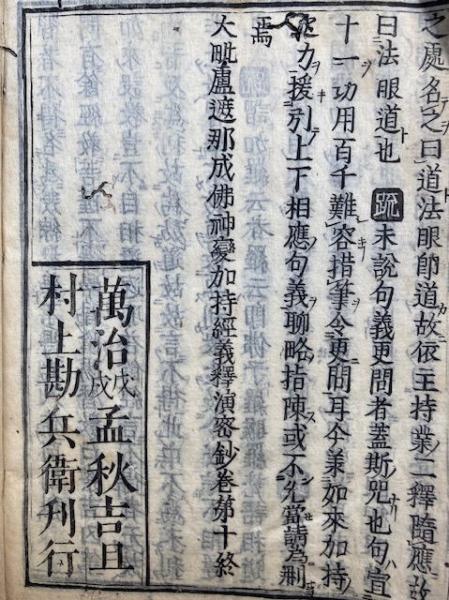 之處名之曰道法眼即道故依主持業二釋隨應故
曰法眼道也 疏 未說句義更問者蓋斯咒也句宣
十一功用百千難容措筆令更問耳今兼如來加持
力援引上下相應句義聊略指陳或不允當請為刪
焉
大毗盧遮那成佛神變加持經義釋演密鈔卷第十終
萬治戊戌孟秋吉旦
村上勘兵衛刊行